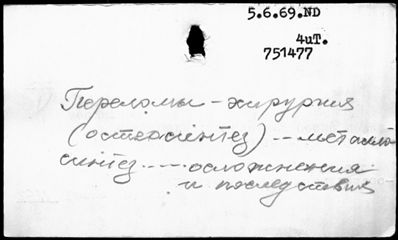 5.6.69.ND
4иТ.
751477
Переломы - хирургия
(остеосинтез) -- металло
синтез ---- осложнения
и последствия